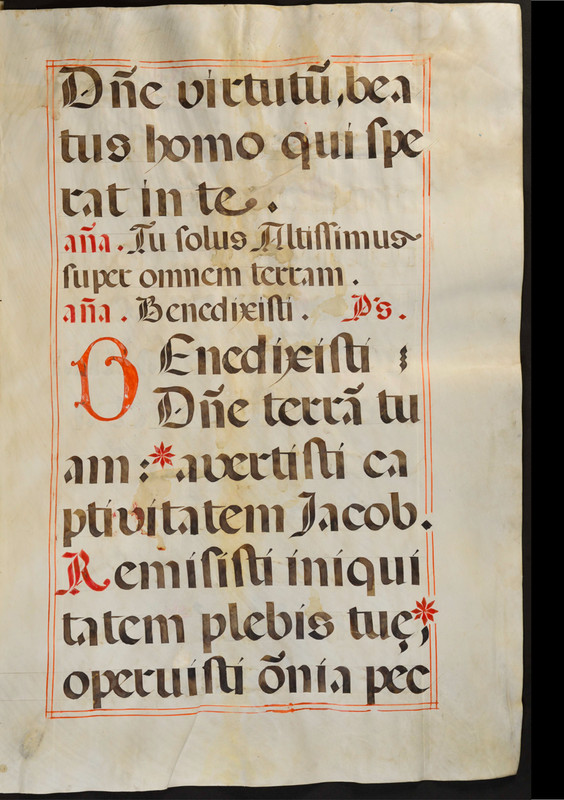 Dñe virtutũ, bea
tus homo qui ſpe
rat in te.
aña. Tu ſolus Altiſſimus
ſuper omnem terram.
aña. Benedixiſti. Ps.
BEnedixiſti
Dñe terrã tu
am:* avertiſti ca
ptivitatem Jacob.
Remiſiſti iniqui
tatem plebis tuę;*
operuiſti õnia pec